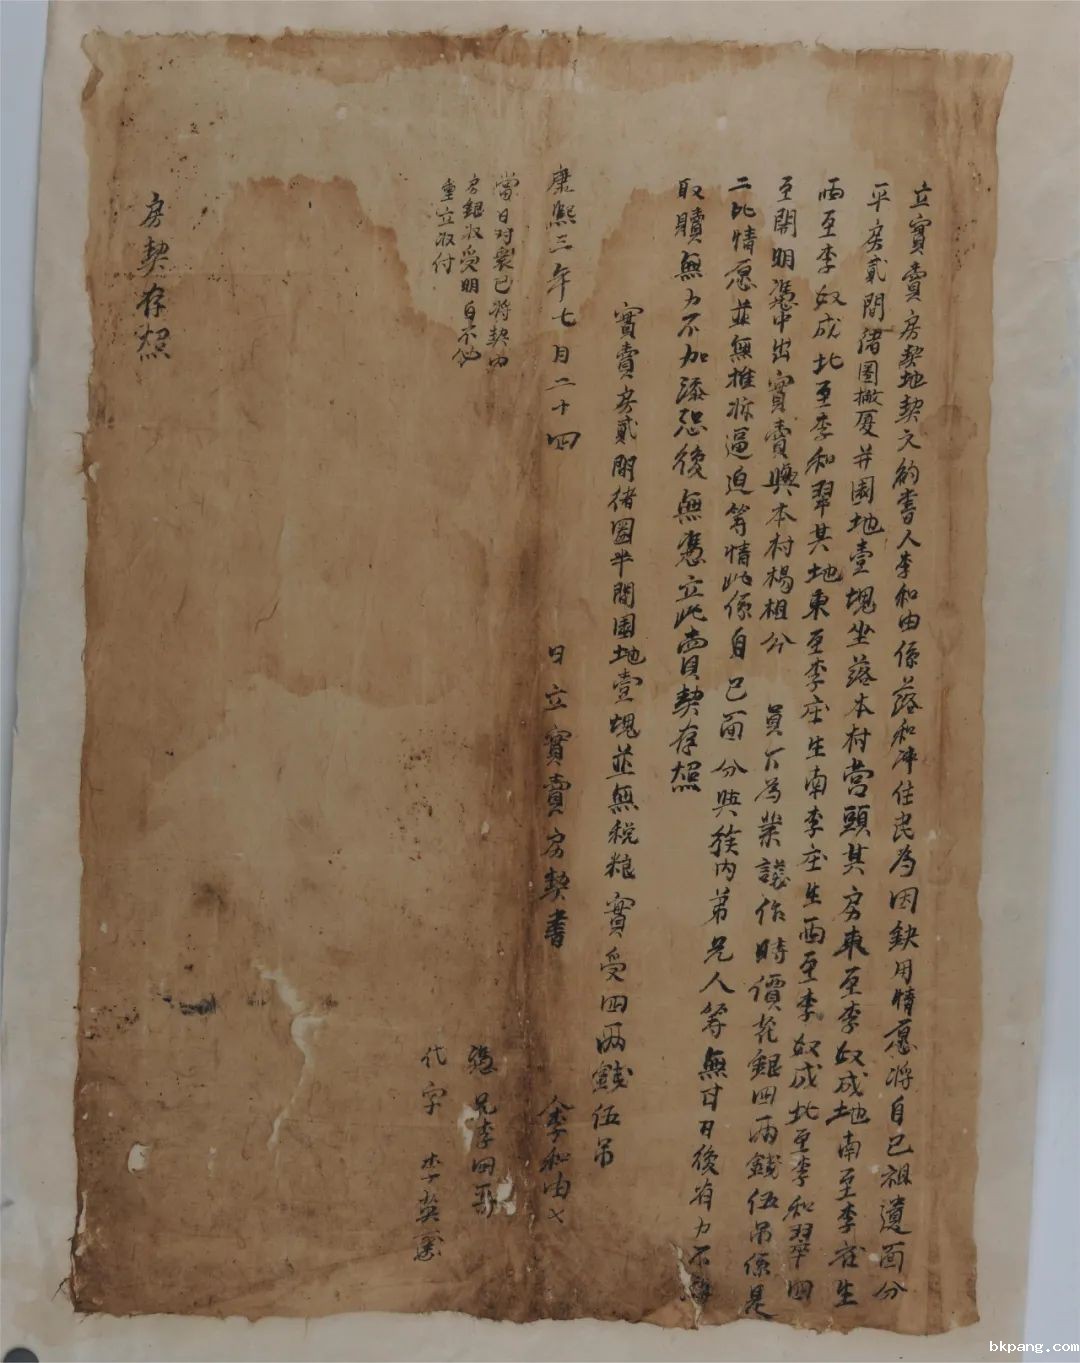 立實賣房契地契文約書人李和由係落和冲住民為因缺用情愿将自己祖遺面分
平房貳間猪圈撇厦并園地壹塊坐落本村营頭其房東至李奴成地南至李庄生
西至李奴成北至李和翠其地東至李庄生南李庄生西至李奴成北至李和翠四
至開明憑中出實賣與本村楊祖分 員下為業議作時價花銀四兩錢伍吊係是
二比情愿並無推㧢逼迫等情此係自己面分與族内弟兄人等無甘日後有力不
取贖無力不加添恐後無憑立此賣契存照
實賣房貳間猪圈半間園地壹塊並無税粮實受四两錢伍吊
康熙三年七月二十四 日立實賣房契書 李和由
當日对衆已将契内
房銀收受明白不必
重立收付
憑兄李田
代字 李英
房契存照
bkpang.com